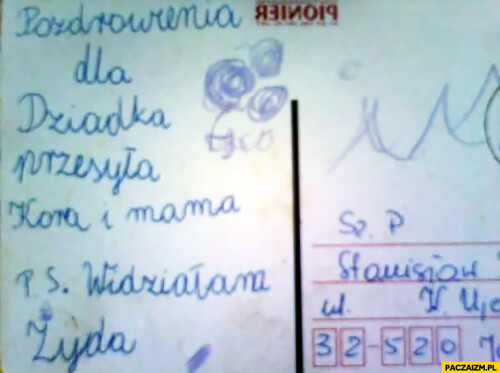 Pozdrowienia
dla
Dziadka
przesyła
Kora i mama
P.S. Widziałam
Żyda
PIONIER
Sz. P
Stanisław
ul.
32-520
PACZAIZM.PL